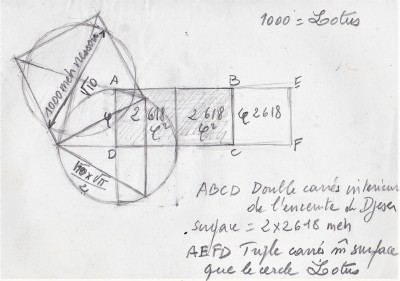 1000 = Lotus
1000 meh
√10
A
B
E
φ
2 618
φ²
2 618
φ²
φ 2618
D
C
F
√10 x √π
2
ABCD Double carrés interieur
de l'enceinte de Djeser
surface = 2x2618 meh
AEFD Triple carrés m surface
que le cercle Lotus